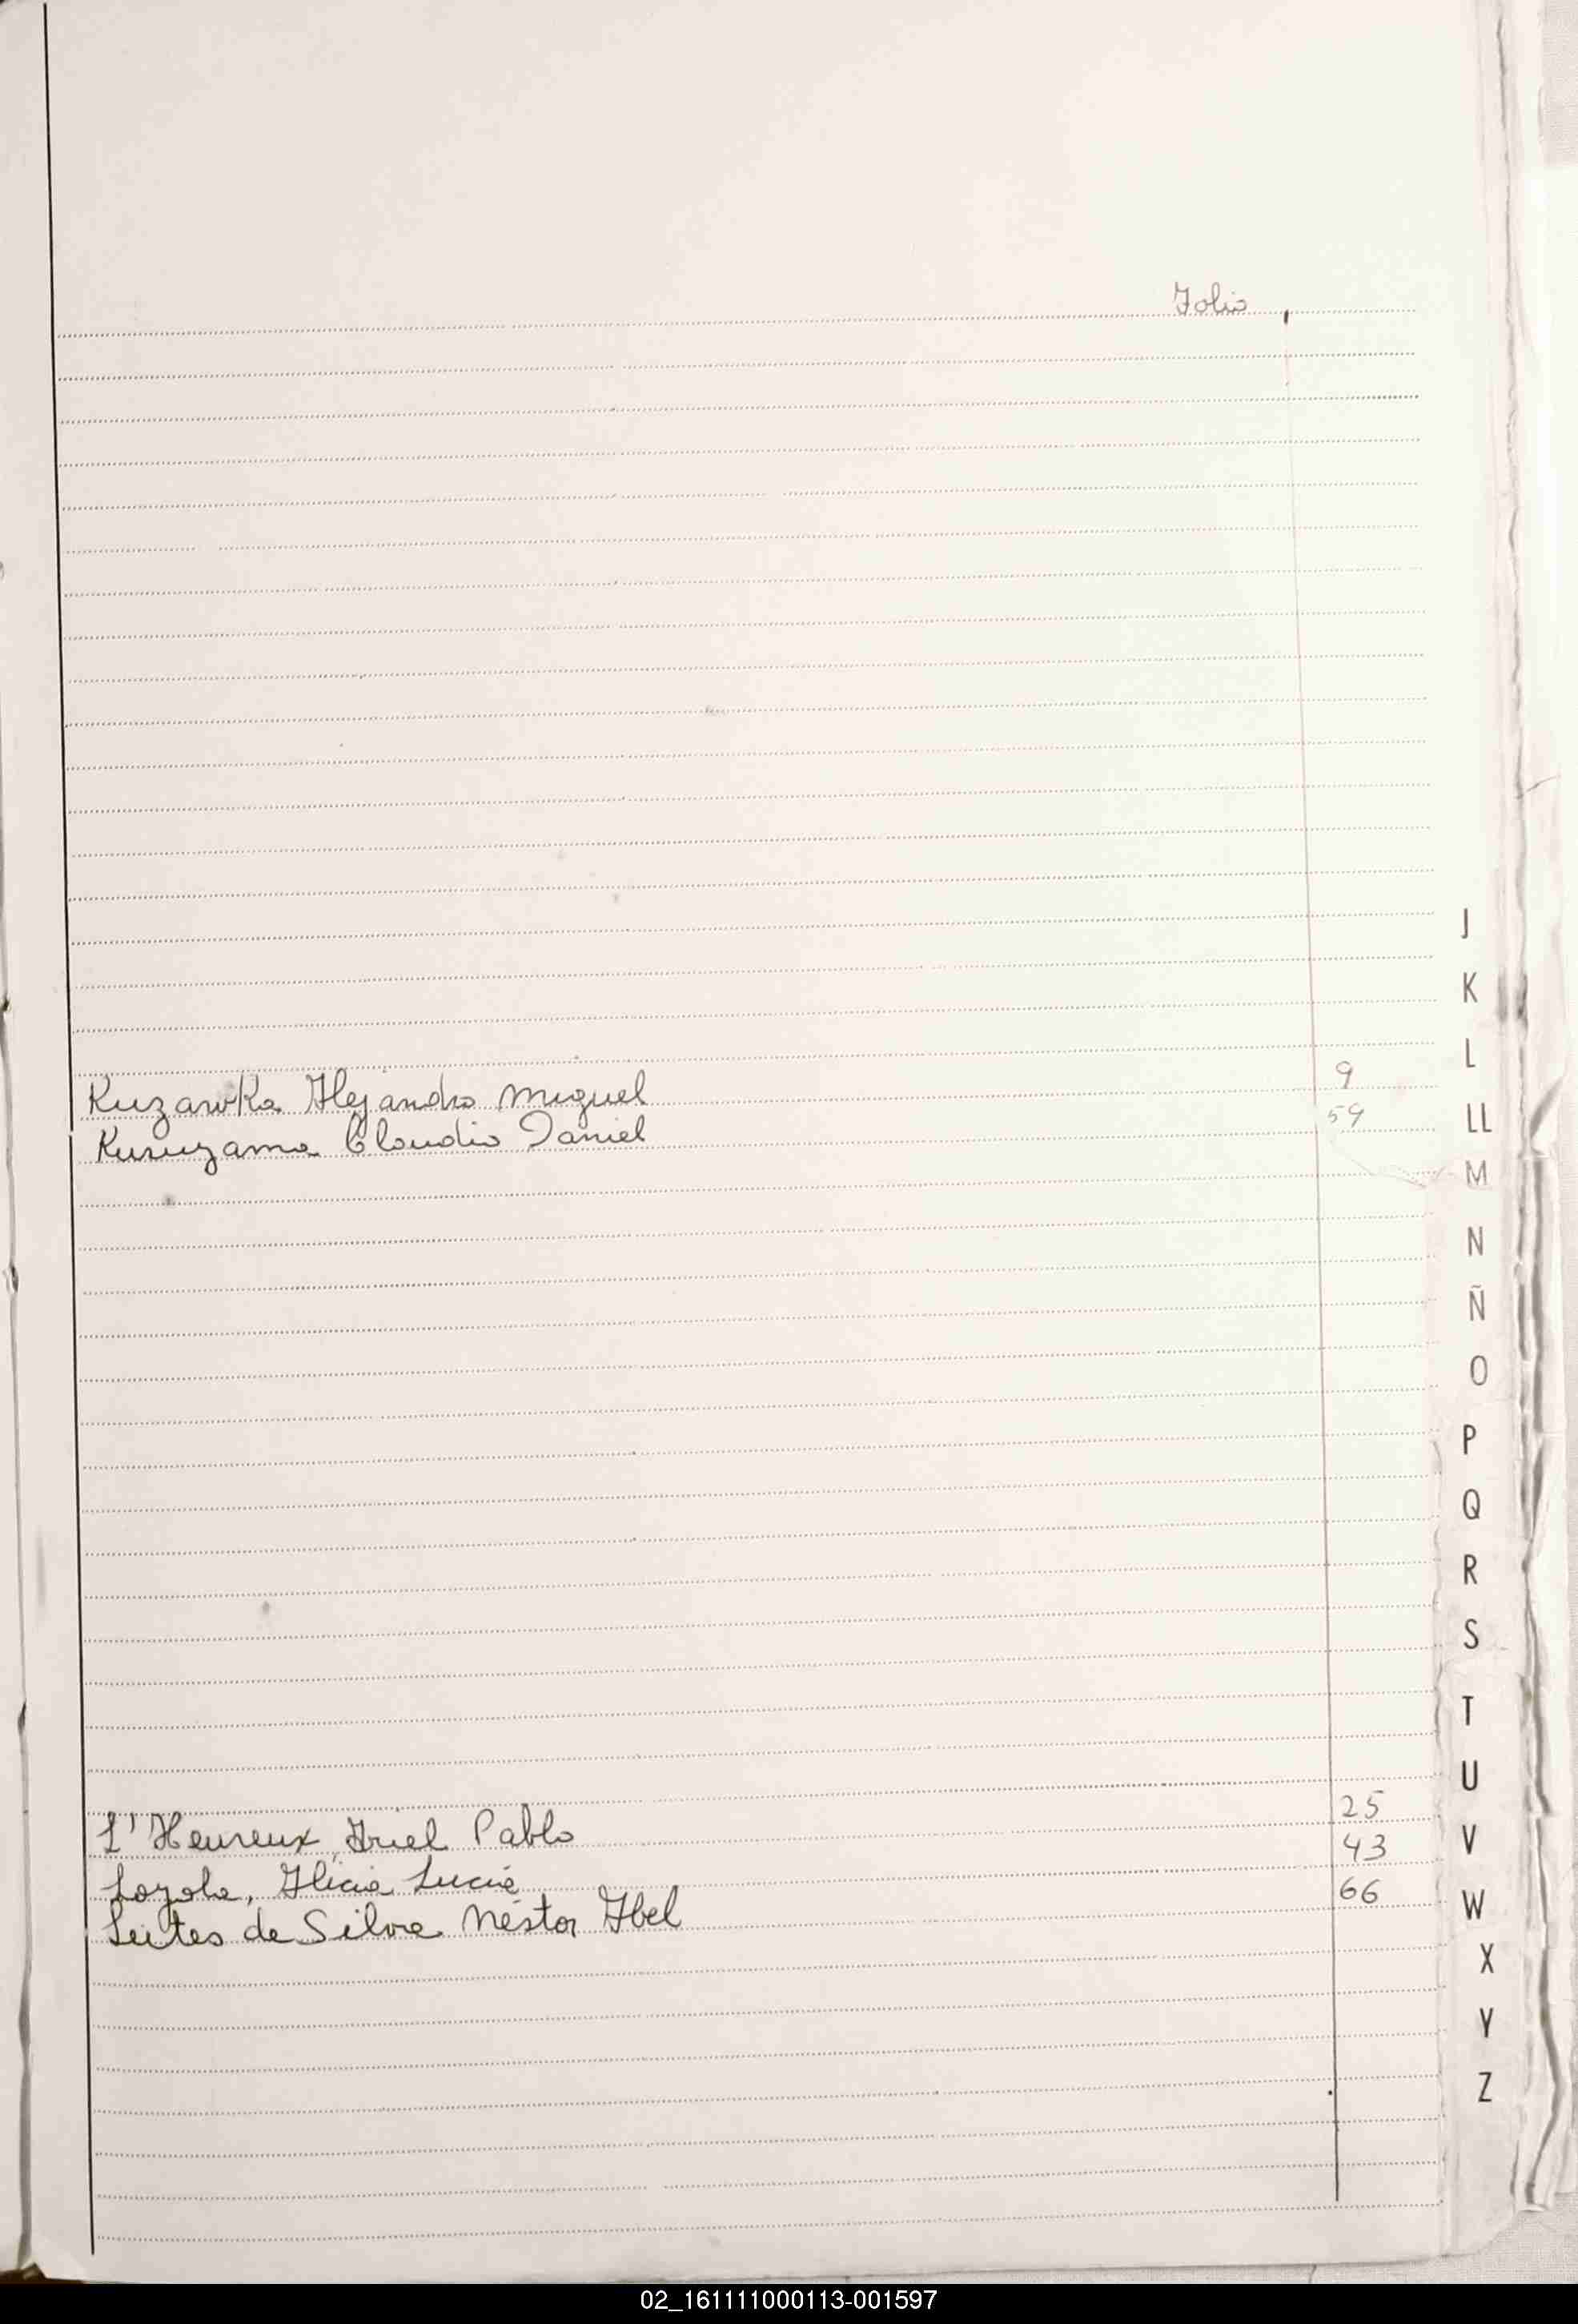 Folio
J
K
L
Kuzawka Alejandro Miguel 9
LL
Kuruyama Claudio Daniel 59
M
N
Ñ
O
P
Q
R
S
T
U
L'Heureux, Ariel Pablo 25
V
Loyola, Alicia Lucía 43
W
Leites de Silva Néstor Abel 66
X
Y
Z
02_161111000113-001597